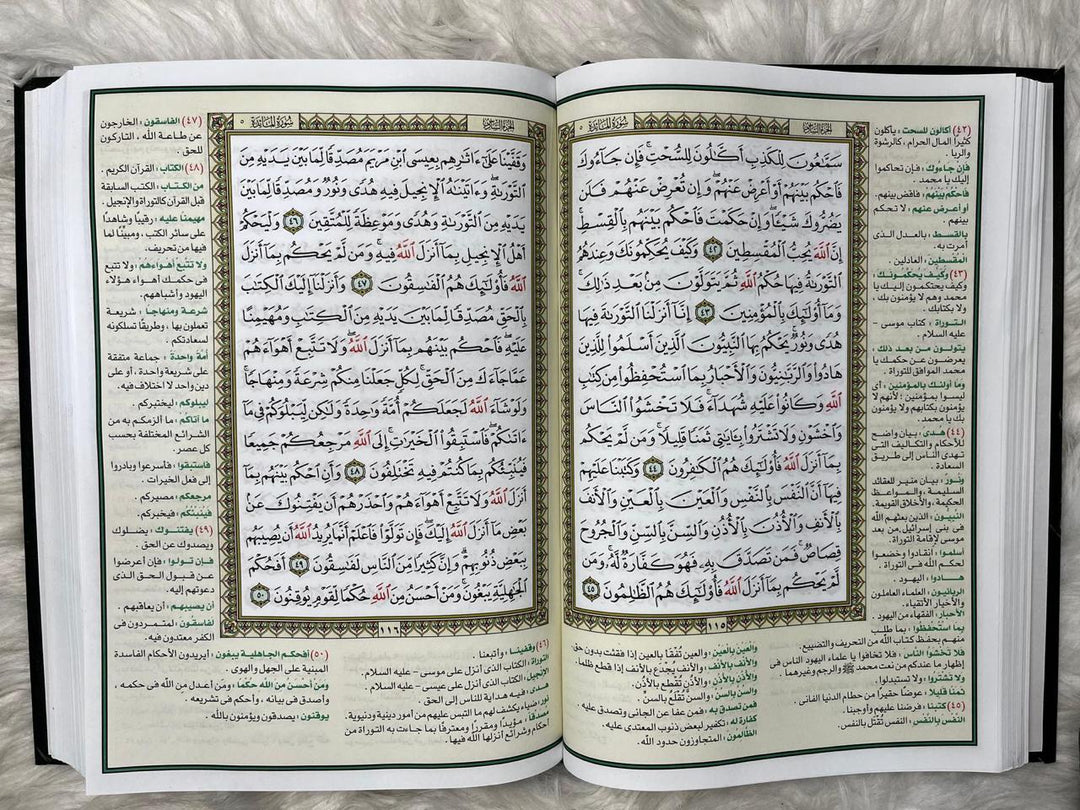 سورة المائدة ٥
الجزء السادس
سَمَّٰعُونَ لِلْكَذِبِ أَكَّٰلُونَ لِلسُّحْتِ ۚ فَإِن جَآءُوكَ
فَٱحْكُم بَيْنَهُمْ أَوْ أَعْرِضْ عَنْهُمْ ۖ وَإِن تُعْرِضْ عَنْهُمْ فَلَن
يَضُرُّوكَ شَيْـًٔا ۖ وَإِنْ حَكَمْتَ فَٱحْكُم بَيْنَهُم بِٱلْقِسْطِ ۚ
إِنَّ ٱللَّهَ يُحِبُّ ٱلْمُقْسِطِينَ ٤٢ وَكَيْفَ يُحَكِّمُونَكَ وَعِندَهُمُ
ٱلتَّوْرَىٰةُ فِيهَا حُكْمُ ٱللَّهِ ثُمَّ يَتَوَلَّوْنَ مِنۢ بَعْدِ ذَٰلِكَ ۚ
وَمَآ أُو۟لَٰٓئِكَ بِٱلْمُؤْمِنِينَ ٤٣ إِنَّآ أَنزَلْنَا ٱلتَّوْرَىٰةَ فِيهَا
هُدًى وَنُورٌ ۚ يَحْكُمُ بِهَا ٱلنَّبِيُّونَ ٱلَّذِينَ أَسْلَمُوا۟ لِلَّذِينَ
هَادُوا۟ وَٱلرَّبَّٰنِيُّونَ وَٱلْأَحْبَارُ بِمَا ٱسْتُحْفِظُوا۟ مِن كِتَٰبِ
ٱللَّهِ وَكَانُوا۟ عَلَيْهِ شُهَدَآءَ ۚ فَلَا تَخْشَوُا۟ ٱلنَّاسَ
وَٱخْشَوْنِ وَلَا تَشْتَرُوا۟ بِـَٔايَٰتِى ثَمَنًا قَلِيلًا ۚ وَمَن لَّمْ يَحْكُم
بِمَآ أَنزَلَ ٱللَّهُ فَأُو۟لَٰٓئِكَ هُمُ ٱلْكَٰفِرُونَ ٤٤ وَكَتَبْنَا عَلَيْهِمْ
فِيهَآ أَنَّ ٱلنَّفْسَ بِٱلنَّفْسِ وَٱلْعَيْنَ بِٱلْعَيْنِ وَٱلْأَنفَ
بِٱلْأَنفِ وَٱلْأُذُنَ بِٱلْأُذُنِ وَٱلسِّنَّ بِٱلسِّنِّ وَٱلْجُرُوحَ
قِصَاصٌ ۚ فَمَن تَصَدَّقَ بِهِۦ فَهُوَ كَفَّارَةٌ لَّهُۥ ۚ وَمَن
لَّمْ يَحْكُم بِمَآ أَنزَلَ ٱللَّهُ فَأُو۟لَٰٓئِكَ هُمُ ٱلظَّٰلِمُونَ ٤٥
١١٥
(٤٢) أكالون للسحت : يأكلون
كثيرًا المال الحرام ، كالرشوة
والربا .
فإن جاءوك : فإن تحاكموا
إليك يا محمد .
فاحكم بينهم : فاقض بينهم .
أو أعرض عنهم : لا تحكم
بينهم .
بالقسط : بالعدل الذى
أمرت به .
المقسطين : العادلين .
(٤٣) وكيف يحكمونك :
وكيف يحتكمون إليك يا
محمد وهم لا يؤمنون بك ،
ولا بكتابك .
التوراة : كتاب موسى -
عليه السلام .
يتولون من بعد ذلك :
يعرضون عن حكمك يا
محمد الموافق للتوراة .
وما أولئك بالمؤمنين : أى
ليسوا بمؤمنين : لأنهم لا
يؤمنون بكتابهم ولا يؤمنون
بك يا محمد .
(٤٤) هدى : بيان واضح
للأحكام والتكاليف التى
تهدى الناس إلى طريق
السعادة .
ونور : بيان منير للعقائد
السليمة ، والمواعظ
الحكيمة ، والأخلاق القويمة .
النبيون : الذين بعثهم الله
فى بنى إسرائيل من بعد
موسى لإقامة التوراة .
أسلموا : انقادوا وخضعوا
لحكم الله فى التوراة .
هادوا : اليهود .
الربانيون : العلماء العاملون
والأخيار الأتقياء .
الأحبار : الفقهاء من اليهود .
بما استحفظوا : بما طلب
منهم بحفظ كتاب الله من التحريف والتضييع .
فلا تخشوا الناس : فلا تخافوا يا علماء اليهود الناس فى
إظهار ما عندكم من نعت محمد ﷺ والرجم وغيرهما .
ولا تشتروا : ولا تستبدلوا .
ثمنا قليلا : عوضًا حقيرًا من حطام الدنيا الفانى .
(٤٥) كتبنا : فرضنا عليهم وأوجبنا .
النفس بالنفس : النفس تُقتل بالنفس .
والعين بالعين : والعين تُفقأ بالعين إذا فقئت بدون حق .
والأنف بالأنف : والأنف يُجدع بالأنف إذا قطع ظلما .
والأذن بالأذن : والأذن تُقطع بالأذن .
والسن بالسن : والسن تُقلع بالسن .
فمن تصدق به : فمن عفا عن الجانى وتصدق عليه .
كفارة له : تكفير لبعض ذنوب المعتدى عليه .
الظالمون : المتجاوزون حدود الله .
سورة المائدة ٥
الجزء السادس
وَقَفَّيْنَا عَلَىٰٓ ءَاثَٰرِهِم بِعِيسَى ٱبْنِ مَرْيَمَ مُصَدِّقًا لِّمَا بَيْنَ يَدَيْهِ مِنَ
ٱلتَّوْرَىٰةِ ۖ وَءَاتَيْنَٰهُ ٱلْإِنجِيلَ فِيهِ هُدًى وَنُورٌ وَمُصَدِّقًا لِّمَا بَيْنَ
يَدَيْهِ مِنَ ٱلتَّوْرَىٰةِ وَهُدًى وَمَوْعِظَةً لِّلْمُتَّقِينَ ٤٦ وَلْيَحْكُمْ
أَهْلُ ٱلْإِنجِيلِ بِمَآ أَنزَلَ ٱللَّهُ فِيهِ ۚ وَمَن لَّمْ يَحْكُم بِمَآ أَنزَلَ
ٱللَّهُ فَأُو۟لَٰٓئِكَ هُمُ ٱلْفَٰسِقُونَ ٤٧ وَأَنزَلْنَآ إِلَيْكَ ٱلْكِتَٰبَ
بِٱلْحَقِّ مُصَدِّقًا لِّمَا بَيْنَ يَدَيْهِ مِنَ ٱلْكِتَٰبِ وَمُهَيْمِنًا
عَلَيْهِ ۖ فَٱحْكُم بَيْنَهُم بِمَآ أَنزَلَ ٱللَّهُ ۖ وَلَا تَتَّبِعْ أَهْوَآءَهُمْ
عَمَّا جَآءَكَ مِنَ ٱلْحَقِّ ۚ لِكُلٍّ جَعَلْنَا مِنكُمْ شِرْعَةً وَمِنْهَاجًا ۚ
وَلَوْ شَآءَ ٱللَّهُ لَجَعَلَكُمْ أُمَّةً وَٰحِدَةً وَلَٰكِن لِّيَبْلُوَكُمْ فِى مَآ
ءَاتَىٰكُمْ ۖ فَٱسْتَبِقُوا۟ ٱلْخَيْرَٰتِ ۚ إِلَى ٱللَّهِ مَرْجِعُكُمْ جَمِيعًا
فَيُنَبِّئُكُم بِمَا كُنتُمْ فِيهِ تَخْتَلِفُونَ ٤٨ وَأَنِ ٱحْكُم بَيْنَهُم بِمَآ
أَنزَلَ ٱللَّهُ وَلَا تَتَّبِعْ أَهْوَآءَهُمْ وَٱحْذَرْهُمْ أَن يَفْتِنُوكَ عَنۢ
بَعْضِ مَآ أَنزَلَ ٱللَّهُ إِلَيْكَ ۖ فَإِن تَوَلَّوْا۟ فَٱعْلَمْ أَنَّمَا يُرِيدُ ٱللَّهُ أَن يُصِيبَهُم
بِبَعْضِ ذُنُوبِهِمْ ۗ وَإِنَّ كَثِيرًا مِّنَ ٱلنَّاسِ لَفَٰسِقُونَ ٤٩ أَفَحُكْمَ
ٱلْجَٰهِلِيَّةِ يَبْغُونَ ۚ وَمَنْ أَحْسَنُ مِنَ ٱللَّهِ حُكْمًا لِّقَوْمٍ يُوقِنُونَ ٥٠
١١٦
(٤٦) وقفينا : وأتبعنا .
التوراة : الكتاب الذى أنزل على موسى - عليه السلام .
الإنجيل : الكتاب الذى أنزل على عيسى - عليه السلام .
هدى : فيه هداية للناس إلى الحق .
نور : ضياء يكشف لهم ما التبس عليهم من أمور دينية ودنيوية .
مصدقا : مؤيدًا ومقررًا ومعترفًا بما جاءت به التوراة من
أحكام وشرائع أنزلها الله فيها .
(٤٧) الفاسقون : الخارجون
عن طاعة الله ، التاركون
للحق .
(٤٨) الكتاب : القرآن الكريم .
من الكتاب : الكتب السابقة
قبل القرآن كالتوراة والإنجيل .
مهيمنا عليه : رقيبًا وشاهدًا
على سائر الكتب ، ومبينًا لما
فيها من تحريف .
ولا تتبع أهواءهم : ولا تتبع
فى حكمك أهواء هؤلاء
اليهود وأشباههم .
شرعة ومنهاجا : شريعة
تعملون بها ، وطريقًا تسلكونه
لسعادتكم .
أمة واحدة : جماعة متفقة
على شريعة واحدة ، أى على
دين واحد لا اختلاف فيه .
ليبلوكم : ليختبركم .
ما آتاكم : ما الزمكم به من
الشرائع المختلفة بحسب
كل عصر .
فاستبقوا : فأسرعوا وبادروا
إلى فعل الخيرات .
مرجعكم : مصيركم .
فينبئكم : فيخبركم .
(٤٩) يفتنوك : يضلوك
ويصدوك عن الحق .
فإن تولوا : فإن أعرضوا
عن قبول الحق الذى
دعوتهم إليه .
أن يصيبهم : أن يعاقبهم .
لفاسقون : لمتمردون فى
الكفر معتدون فيه .
(٥٠) أفحكم الجاهلية يبغون : أيريدون الأحكام الفاسدة
المبنية على الجهل والهوى .
ومن أحسن من الله حكما : ومن أعدل من الله فى حكمه ،
وأصدق فى بيانه ، وأحكم فى تشريعه .
يوقنون : يصدقون ويؤمنون بالله .